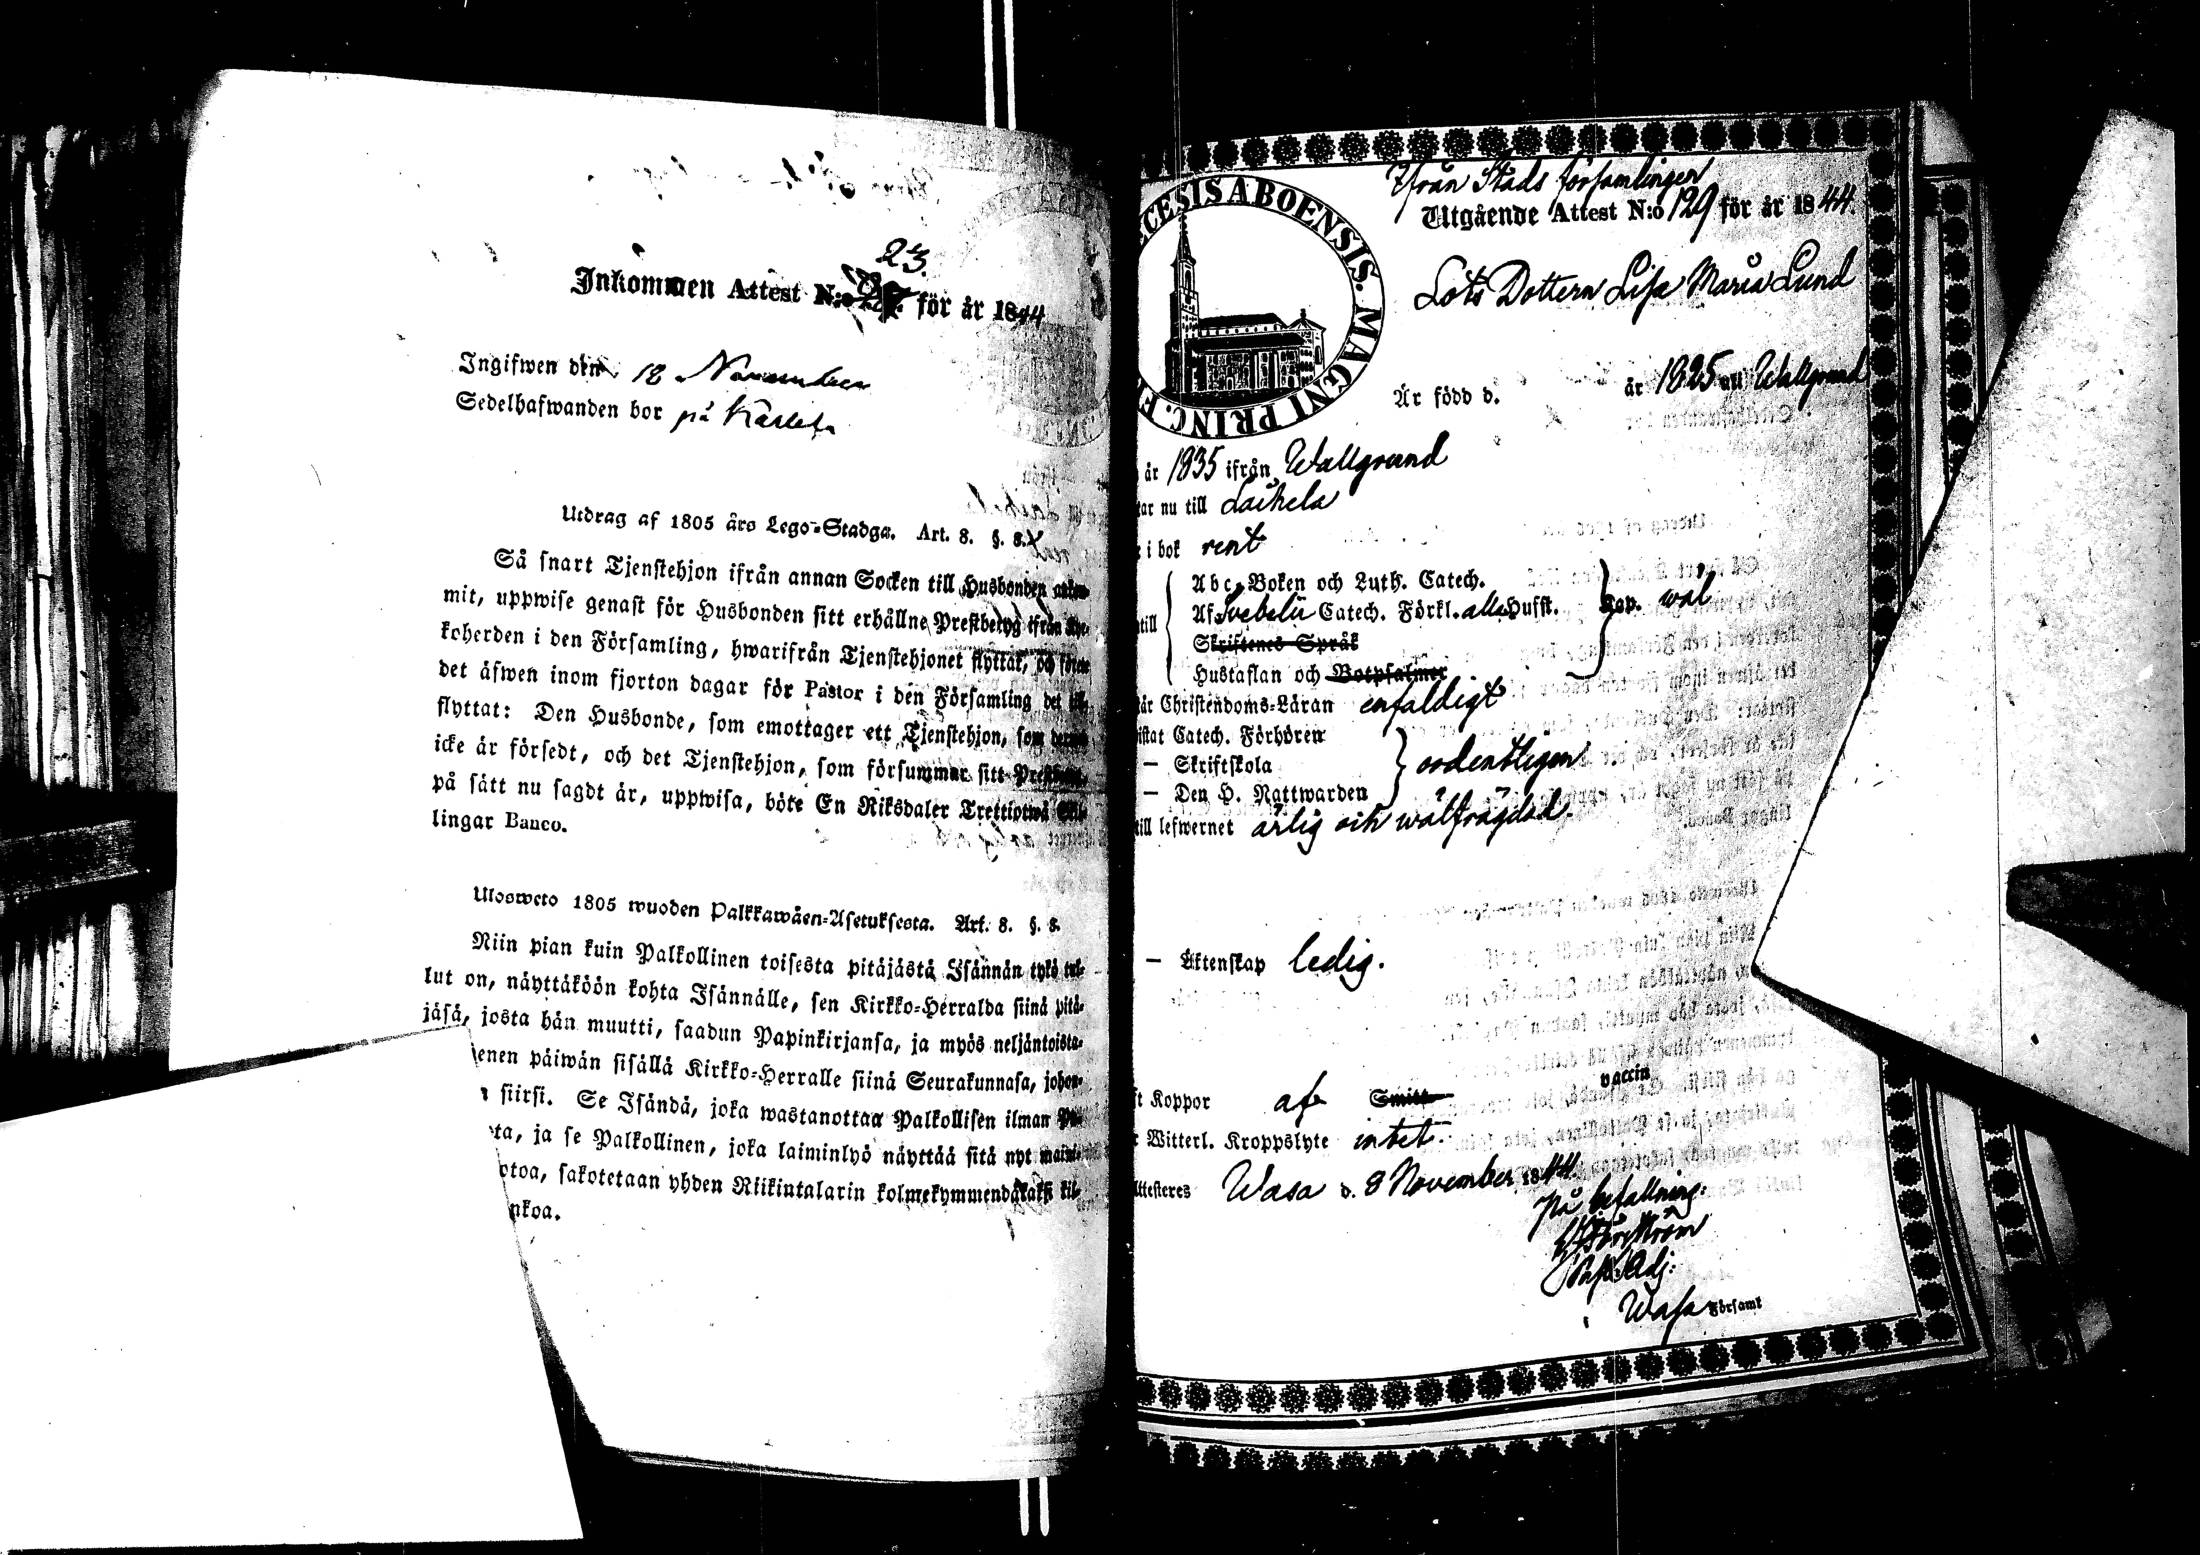 23.
Inkommen Attest N:o för år 1844
Ingifwen den 18 November
Sedelhafwanden bor på
Utdrag af 1805 års Lego-Stadga. Art. 8. §. 8.
Så snart Tjenstehjon ifrån annan Socken till Husbonden
mit, uppwise genast för Husbonden sitt erhållne Prestbetyg ifrån
koherden i den Församling, hwarifrån Tjenstehjonet flyttat, och
det äfwen inom fjorton dagar för Pastor i den Församling det
flyttat: Den Husbonde, som emottager ett Tjenstehjon, som
icke är försedt, och det Tjenstehjon, som försummar sitt
på sätt nu sagdt är, uppwisa, böte En Riksdaler Trettiotwå
lingar Banco.
Ulosweto 1805 wuoden Palkkawäen-Asetuksesta. Art. 8. §. 8.
Niin pian kuin Palkollinen toisesta pitäjästä Isännän tykö tul-
lut on, näyttäköön kohta Isännälle, sen Kirkko-Herralda siinä pitä-
jäsä, josta hän muutti, saadun Papinkirjansa, ja myös neljäntoista-
enen päiwän sisällä Kirkko-Herralle siinä Seurakunnasa, johon-
siirsi. Se Isändä, joka wastanottaa Palkollisen ilman
ta, ja se Palkollinen, joka laiminlyö näyttää sitä nyt
otoa, sakotetaan yhden Riikintalarin kolmekymmendäkaksi kil-
nkoa.
CESIS ABOENSIS. MAGNI PRINC. F
Ifrån Stads församlingen
Utgående Attest N:o 129 för år 1844.
Lots Dottern Lisa Maria Lund
Är född d. år 1825 uti Wallgrund
år 1835 ifrån Wallgrund
tar nu till Laihela
i bok rent
Abc-Boken och Luth. Catech.
Af Svebelii Catech. Förkl. alla Hufst. Cap. wäl
till
Skriftenes Språk
Hustaflan och Botpsalmer
tår Christendoms-Läran enfaldigt
istat Catech. Förhören
— Skriftskola ordentligen
— Den H. Nattwarden
till lefwernet ärlig och wälfrägdad.
— Äktenskap ledig.
vaccin
ft Koppor af Smitt
r Witterl. Kroppslyte intet.
Attesteres Wasa d. 8 November 1844.
På befallning:
Past: Adj:
Wasa Församl